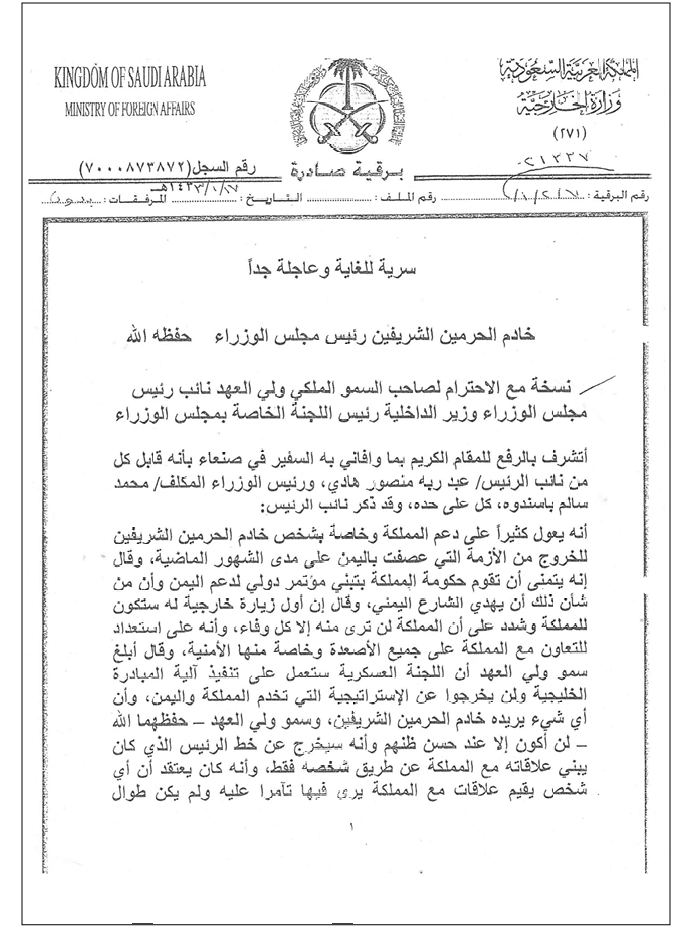 KINGDOM OF SAUDI ARABIA
MINISTRY OF FOREIGN AFFAIRS
المملكة العربية السعودية
وزارة الخارجية
(٢٧١)
برقية صادرة
رقم السجل (٧٠٠٠٨٧٣٨٧٢)
٠٢١٣٣٧
رقم البرقية : رقم الملف : التاريخ : ١٤٣٣/١/١٧هـ المرفقات : بدون
سرية للغاية وعاجلة جداً
خادم الحرمين الشريفين رئيس مجلس الوزراء حفظه الله
نسخة مع الاحترام لصاحب السمو الملكي ولي العهد نائب رئيس
مجلس الوزراء وزير الداخلية رئيس اللجنة الخاصة بمجلس الوزراء
أتشرف بالرفع للمقام الكريم بما وافاتي به السفير في صنعاء بأنه قابل كل
من نائب الرئيس/ عبد ربه منصور هادي، ورئيس الوزراء المكلف/ محمد
سالم باسندوه، كل على حده، وقد ذكر نائب الرئيس:
أنه يعول كثيراً على دعم المملكة وخاصة بشخص خادم الحرمين الشريفين
للخروج من الأزمة التي عصفت باليمن على مدى الشهور الماضية، وقال
إنه يتمنى أن تقوم حكومة المملكة بتبني مؤتمر دولي لدعم اليمن وأن من
شأن ذلك أن يهدي الشارع اليمني، وقال إن أول زيارة خارجية له ستكون
للمملكة وشدد على أن المملكة لن ترى منه إلا كل وفاء، وأنه على استعداد
للتعاون مع المملكة على جميع الأصعدة وخاصة منها الأمنية، وقال أبلغ
سمو ولي العهد أن اللجنة العسكرية ستعمل على تنفيذ آلية المبادرة
الخليجية ولن يخرجوا عن الإستراتيجية التي تخدم المملكة واليمن، وأن
أي شيء يريده خادم الحرمين الشريفين، وسمو ولي العهد – حفظهما الله
– لن أكون إلا عند حسن ظنهم وأنه سيخرج عن خط الرئيس الذي كان
يبني علاقاته مع المملكة عن طريق شخصه فقط، وأنه كان يعتقد أن أي
شخص يقيم علاقات مع المملكة يرى فيها تآمرا عليه ولم يكن طوال
١